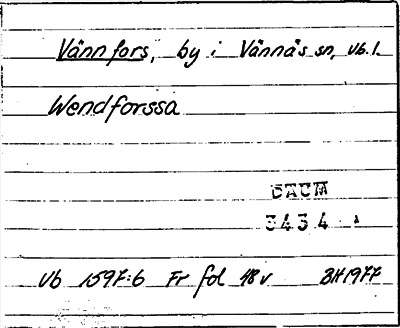 Vännfors, by i Vännäs sn, Vb.l.
Wendforssa
DAUM
3434
Vb 1597:6 Fr fol 48 v BH 1977